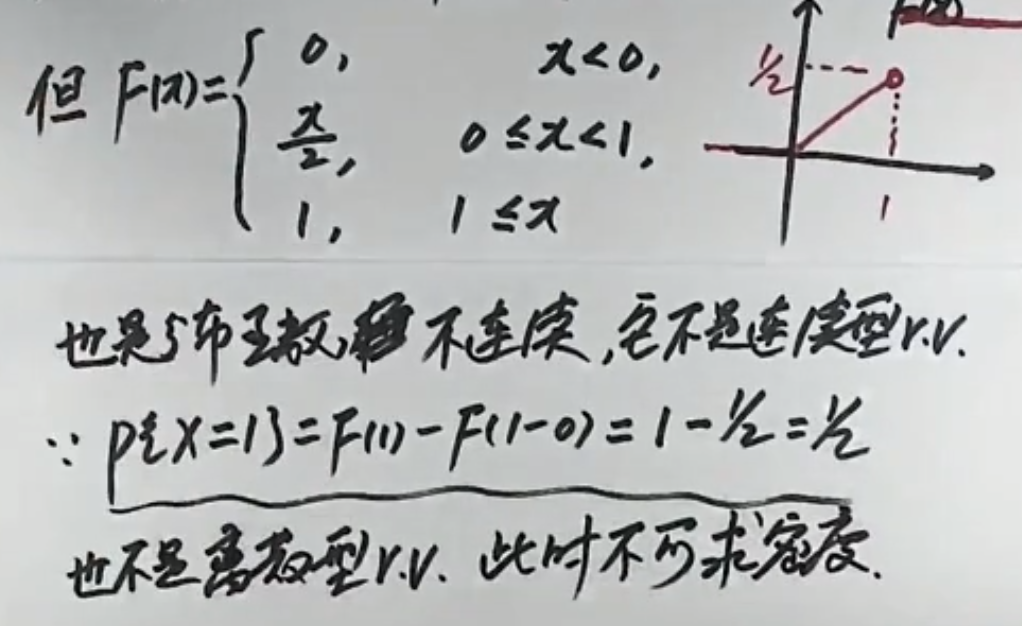 但 F(x)={ 0, x<0,
x/2, 0≤x<1,
1, 1≤x
F(x)
1/2
1
也是分布函数, 不连续,它不是连续型r.v.
∵ P{X=1}=F(1)-F(1-0)=1-1/2=1/2
也不是离散型r.v. 此时不可求密度.